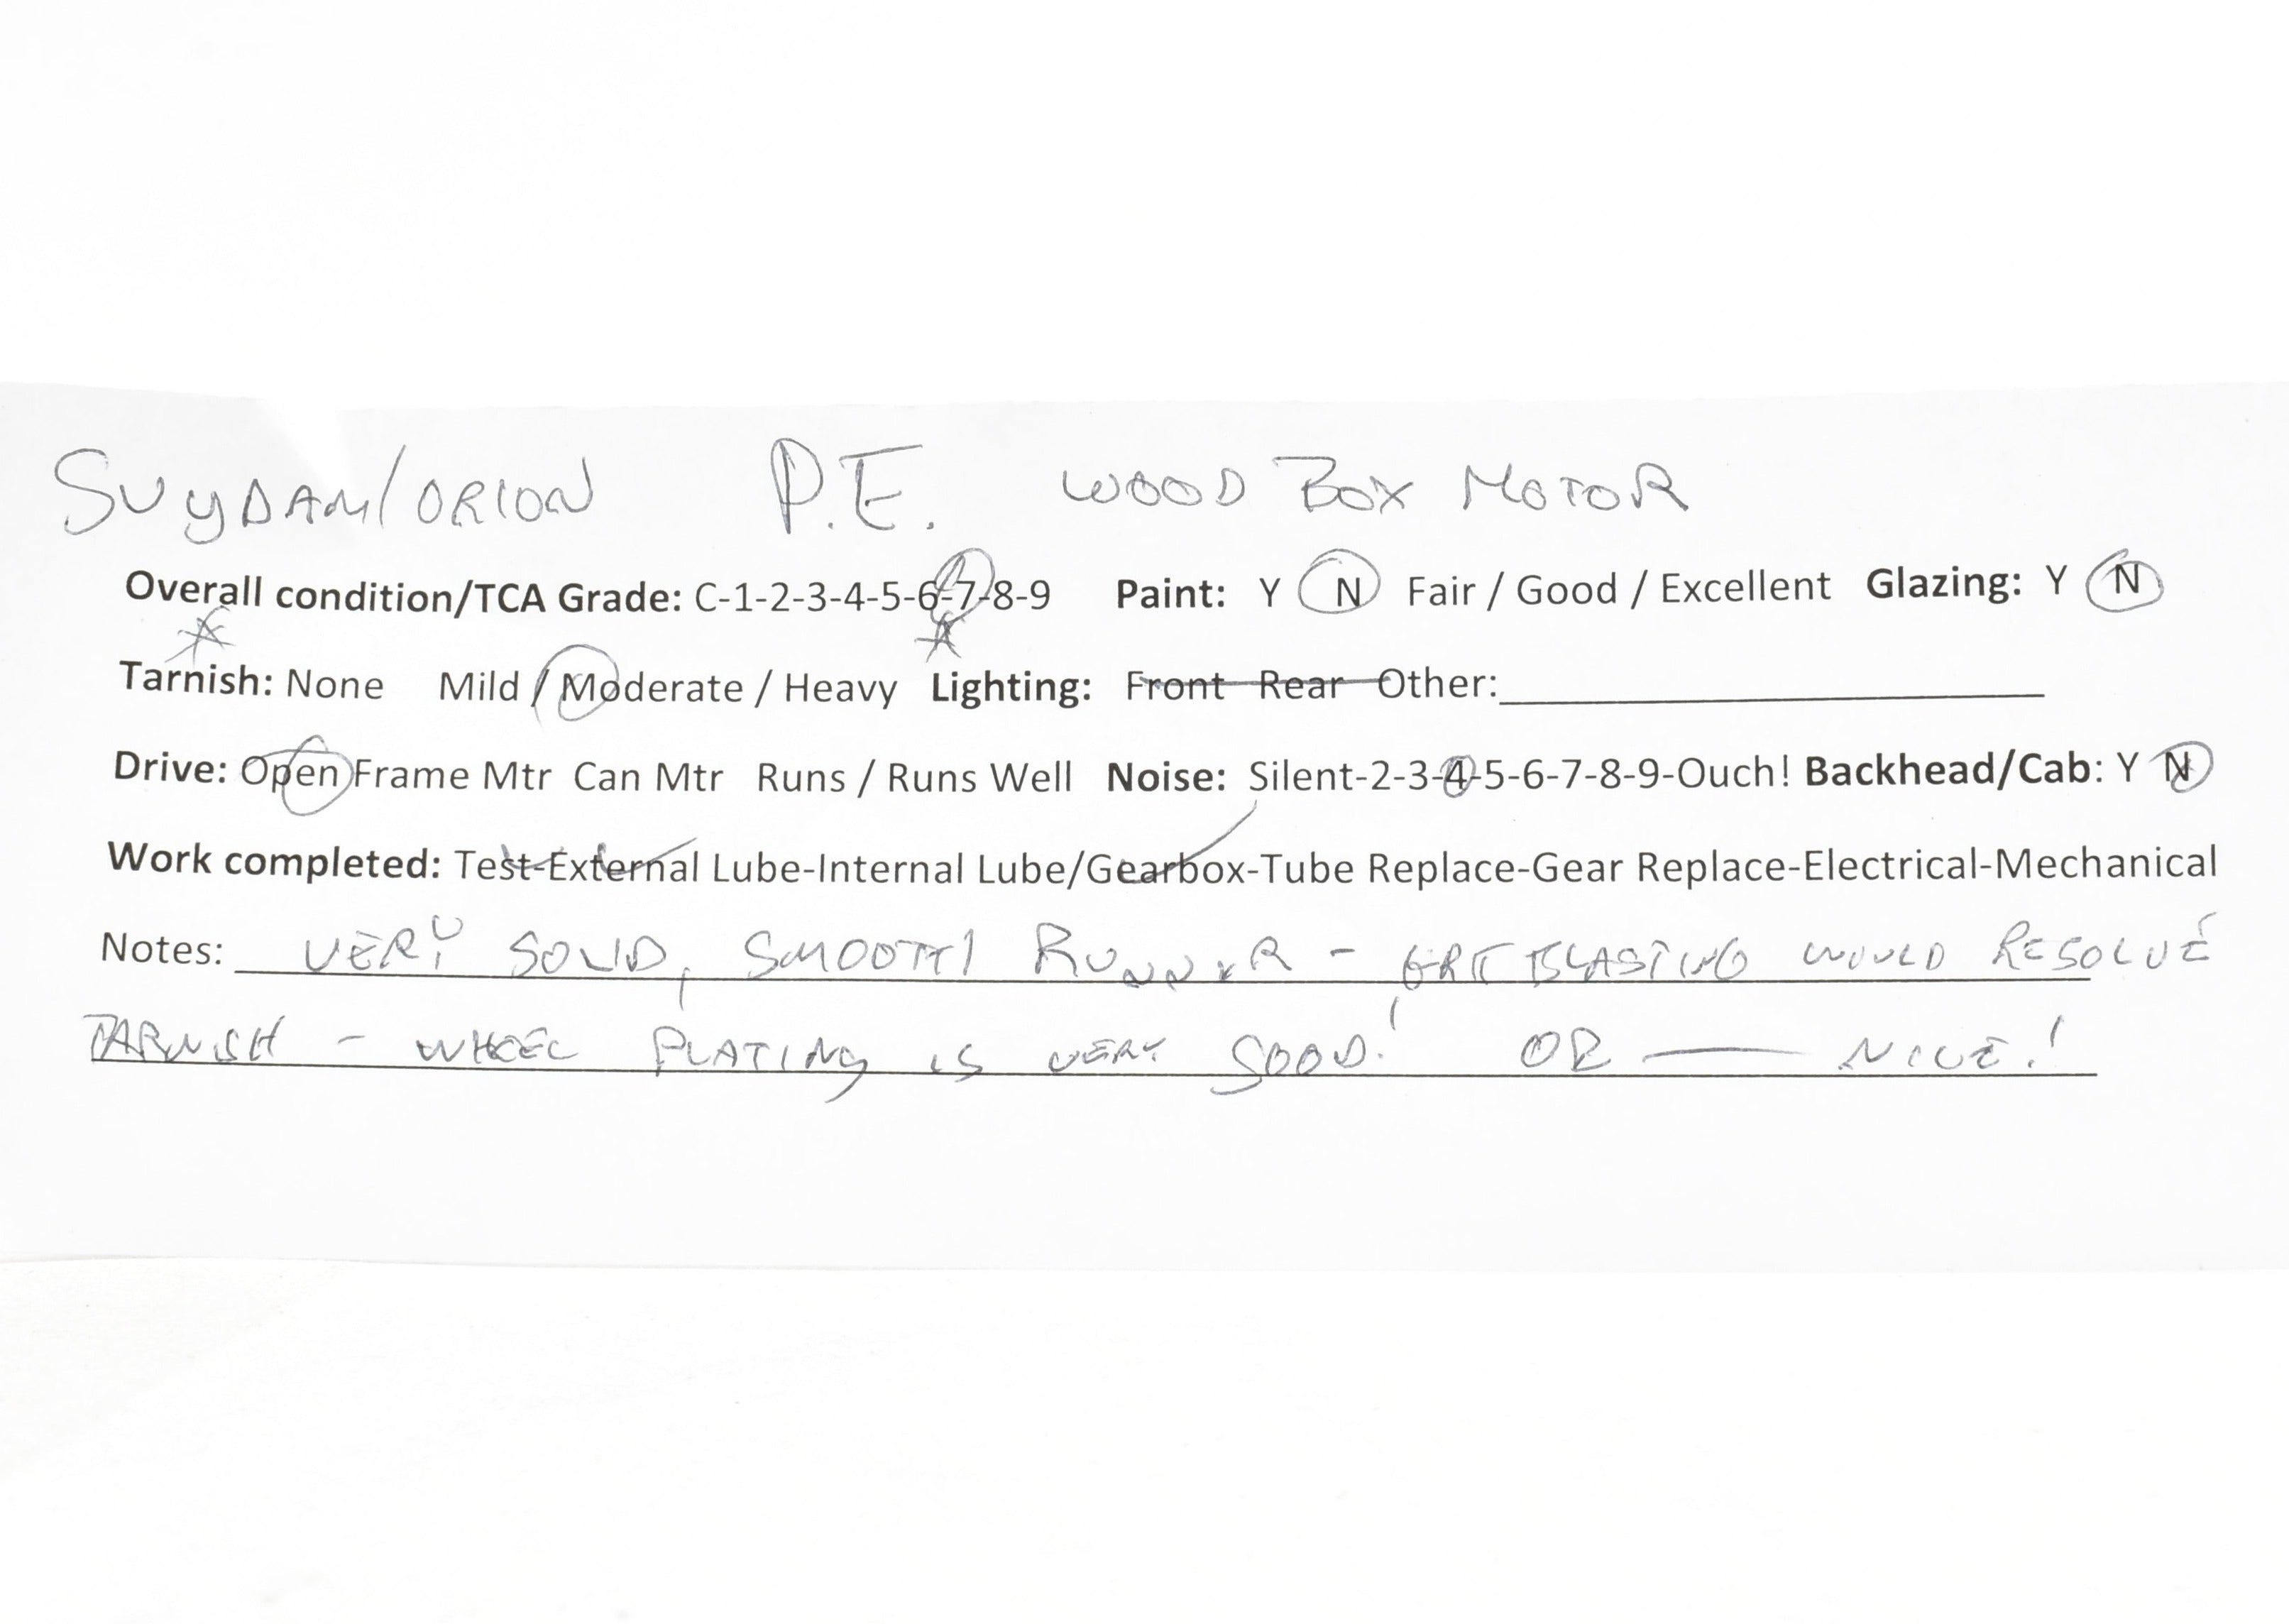 SUYDAM/ORION P.E. WOOD BOX MOTOR
Overall condition/TCA Grade: C-1-2-3-4-5-6-7-8-9 Paint: Y N Fair / Good / Excellent Glazing: Y N
Tarnish: None Mild / Moderate / Heavy Lighting: Front Rear Other:
Drive: Open Frame Mtr Can Mtr Runs / Runs Well Noise: Silent-2-3-4-5-6-7-8-9-Ouch! Backhead/Cab: Y N
Work completed: Test-External Lube-Internal Lube/Gearbox-Tube Replace-Gear Replace-Electrical-Mechanical
Notes: VERY SOLID, SMOOTH RUNNER - GRIT BLASTING WOULD RESOLVE
TARNISH - WHEEL PLATING IS VERY GOOD! OB — NICE!